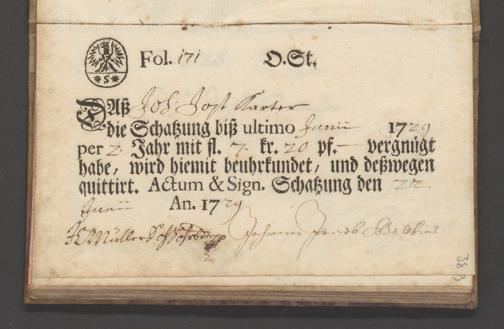 Fol. 171 O.St.
*S*
Daß Joh Jost Karter
die Schatzung biß ultimo Junii 1729
per 2. Jahr mit fl. 7. kr. 20 pf.— vergnügt
habe, wird hiemit beuhrkundet, und deßwegen
quittirt. Actum & Sign. Schatzung den 22.
Junii An. 1729
Müller Johann Jacob
38